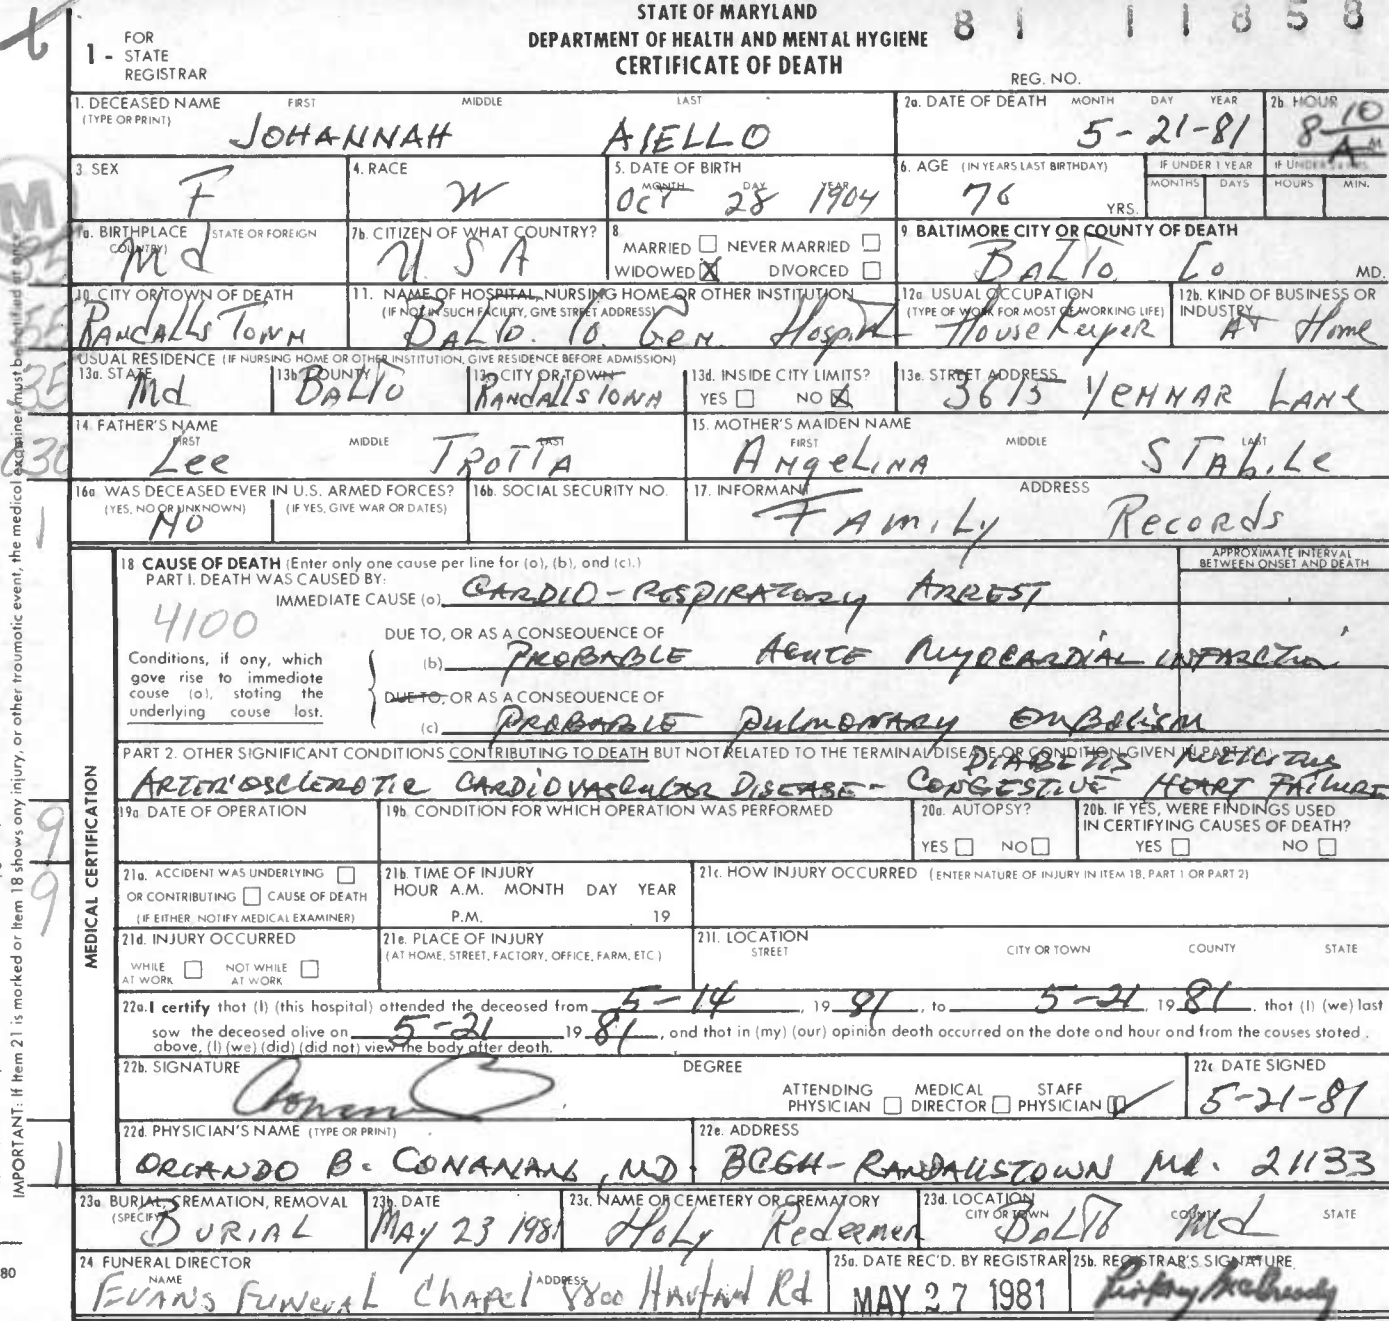 STATE OF MARYLAND
DEPARTMENT OF HEALTH AND MENTAL HYGIENE
CERTIFICATE OF DEATH
81 11858
1 - FOR STATE REGISTRAR
REG. NO.
1. DECEASED NAME (TYPE OR PRINT) FIRST MIDDLE LAST
JOHANNAH AIELLO
2a. DATE OF DEATH MONTH DAY YEAR
5-21-81
2b. HOUR
8 10 A M
3. SEX
F
4. RACE
W
5. DATE OF BIRTH MONTH DAY YEAR
OCT 28 1904
6. AGE (IN YEARS LAST BIRTHDAY)
76 YRS.
IF UNDER 1 YEAR MONTHS DAYS
HOURS MIN.
7a. BIRTHPLACE (STATE OR FOREIGN COUNTRY)
Md
7b. CITIZEN OF WHAT COUNTRY?
U.S A
8. MARRIED NEVER MARRIED
WIDOWED X DIVORCED
9. BALTIMORE CITY OR COUNTY OF DEATH
BALTO. Co MD.
10. CITY OR TOWN OF DEATH
RANDALLS TOWN
11. NAME OF HOSPITAL, NURSING HOME OR OTHER INSTITUTION
(IF NOT IN SUCH FACILITY, GIVE STREET ADDRESS)
BALTO. Co. Gen. Hospital
12a. USUAL OCCUPATION
(TYPE OF WORK FOR MOST OF WORKING LIFE)
Housekeeper
12b. KIND OF BUSINESS OR INDUSTRY
AT Home
USUAL RESIDENCE (IF NURSING HOME OR OTHER INSTITUTION, GIVE RESIDENCE BEFORE ADMISSION)
13a. STATE
Md
13b. COUNTY
BALTO
13c. CITY OR TOWN
RANDALLSTOWN
13d. INSIDE CITY LIMITS?
YES NO X
13e. STREET ADDRESS
3615 YeHNAR LANe
14. FATHER'S NAME FIRST MIDDLE LAST
Lee TROTTA
15. MOTHER'S MAIDEN NAME FIRST MIDDLE LAST
ANgeLiNA STABiLe
16a. WAS DECEASED EVER IN U.S. ARMED FORCES?
(YES, NO OR UNKNOWN) (IF YES, GIVE WAR OR DATES)
NO
16b. SOCIAL SECURITY NO.
17. INFORMANT ADDRESS
FAmiLy Records
18 CAUSE OF DEATH (Enter only one cause per line for (a), (b), and (c).)
APPROXIMATE INTERVAL BETWEEN ONSET AND DEATH
PART I. DEATH WAS CAUSED BY:
IMMEDIATE CAUSE (a) CARDIO-RESPIRATORY ARREST
4100
DUE TO, OR AS A CONSEQUENCE OF
(b) PROBABLE ACUTE MYOCARDIAL INFARCTION
Conditions, if any, which gave rise to immediate cause (a), stating the underlying cause last.
DUE TO, OR AS A CONSEQUENCE OF
(c) PROBABLE PULMONARY EMBOLISM
PART 2. OTHER SIGNIFICANT CONDITIONS CONTRIBUTING TO DEATH BUT NOT RELATED TO THE TERMINAL DISEASE OR CONDITION GIVEN IN PART 1(a)
DIABETIS MELLITUS
ARTERIOSCLEROTIC CARDIOVASCULAR DISEASE - CONGESTIVE HEART FAILURE
MEDICAL CERTIFICATION
19a. DATE OF OPERATION
19b. CONDITION FOR WHICH OPERATION WAS PERFORMED
20a. AUTOPSY?
YES NO
20b. IF YES, WERE FINDINGS USED IN CERTIFYING CAUSES OF DEATH?
YES NO
21a. ACCIDENT WAS UNDERLYING
OR CONTRIBUTING CAUSE OF DEATH
(IF EITHER, NOTIFY MEDICAL EXAMINER)
21b. TIME OF INJURY
HOUR A.M. MONTH DAY YEAR
P.M. 19
21c. HOW INJURY OCCURRED (ENTER NATURE OF INJURY IN ITEM 18, PART 1 OR PART 2)
21d. INJURY OCCURRED
WHILE AT WORK NOT WHILE AT WORK
21e. PLACE OF INJURY
(AT HOME, STREET, FACTORY, OFFICE, FARM, ETC.)
21f. LOCATION STREET CITY OR TOWN COUNTY STATE
22a. I certify that (I) (this hospital) attended the deceased from 5-14, 19 81, to 5-21, 19 81, that (I) (we) last
saw the deceased alive on 5-21 19 81, and that in (my) (our) opinion death occurred on the date and hour and from the causes stated
above, (I) (we) (did) (did not) view the body after death.
22b. SIGNATURE
DEGREE
ATTENDING PHYSICIAN MEDICAL DIRECTOR STAFF PHYSICIAN
22c. DATE SIGNED
5-21-81
22d. PHYSICIAN'S NAME (TYPE OR PRINT)
ORLANDO B. CONANAN, MD.
22e. ADDRESS
BCGH-RANDALLSTOWN Md. 21133
23a. BURIAL, CREMATION, REMOVAL (SPECIFY)
BURIAL
23b. DATE
MAY 23 1981
23c. NAME OF CEMETERY OR CREMATORY
Holy Redeemer
23d. LOCATION CITY OR TOWN COUNTY STATE
BALTO Md
24. FUNERAL DIRECTOR NAME ADDRESS
EVANS FUNeraL Chapel 8800 Harford Rd
25a. DATE REC'D. BY REGISTRAR
MAY 27 1981
25b. REGISTRAR'S SIGNATURE
IMPORTANT: If Item 21 is marked or Item 18 shows any injury, or other traumatic event, the medical examiner must be notified at once.
80